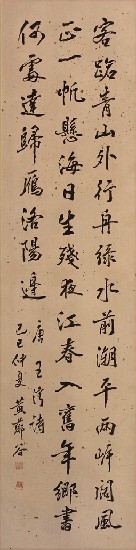 客路青山外行舟綠水前潮平兩岸闊風
正一帆懸海日生殘夜江春入舊年鄉書
何處達歸雁洛陽邊
唐王灣詩
己巳仲夏黃谷